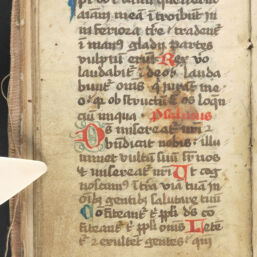 aīam meā ītroibūt in
inferiora t̄re tradent᷑
ī man᷑ gladij partes
vulpiū erūt Rex vo
laudabit᷑ ī deo lauda
bunt᷑ om̄s q̇ iurāt in e
o q̇ obstructū ē os loqn̄
iniqua Psalmus
Ds misereat᷑ nr̄i ⁊
bn̄dicat nobis illu
minet vultū suū sr̄ nos
et misereat᷑ nr̄i Ut cog
noscam᷑ ī t̄ra viā tuā in
om̄ib᷑ gentib᷑ salutare tuū
Cōfiteant᷑ t᷑ pp̄li ds cō
fiteant᷑ t᷑ pp̄li om̄s Lete
t᷑ ⁊ exultet gentes qm̄